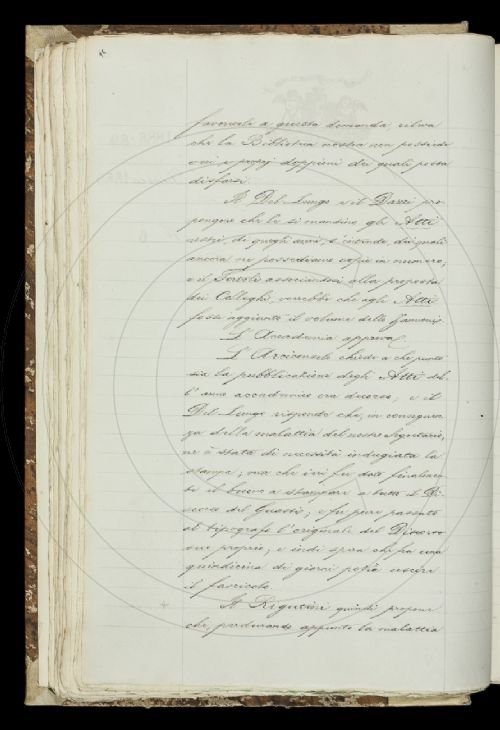 favorevole a questa domanda, rileva
che la Biblioteca nostra non possiede
ora proprj doppioni dei quali possa
disfarsi.
Il Del Lungo e il Dazzi pro-
pongono che le si mandino gli Atti
nostri, di quegli anni, s'intende, dei quali
ancora ne possediamo copie in numero;
e il Tortoli associandosi alla proposta
dei Colleghi, vorrebbe che agli Atti
fosse aggiunto il volume delle
L'Accademia approva.
L'Arciconsolo chiede a che punto
sia la pubblicazione degli Atti del-
l'anno accademico ora decorso; e il
Del Lungo risponde che, in conseguen-
za della malattia del nostro Segretario,
ne è stata di necessità indugiata la
stampa; ma che ieri fu dato finalmen-
te il buono a stampare a tutto il Di-
scorso del Guasti; e fu pure passato
al tipografo l'originale del Discorso
suo proprio; e indi spera che fra una
quindicina di giorni possa uscire
il fascicolo.
Il Rigutini quindi propone
che, perdurando appunto la malattia